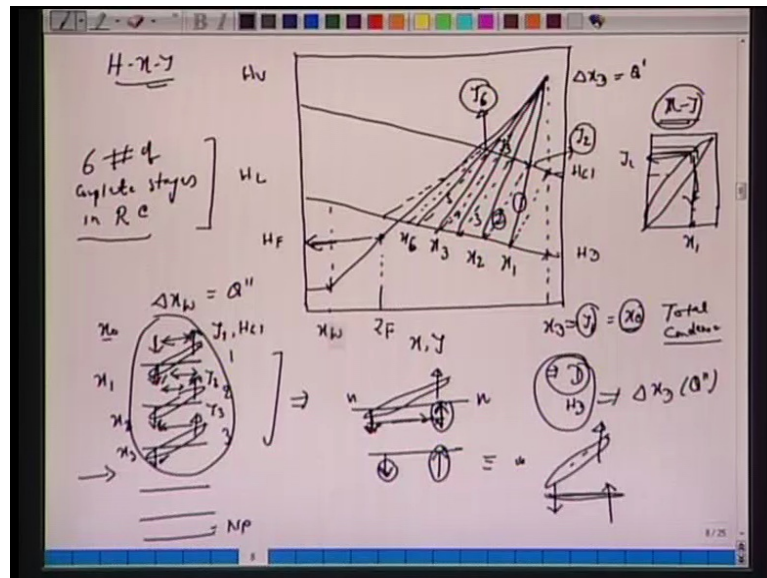 B I
H-x-y
Hv
Δx_D = Q'
x-y
y_6
y_2
6 # of
complete stages
in R C
H_L
H_C1
y_2
x_1
H_F
x_6 x_3 x_2 x_1
H_D
Δx_W = Q''
x_W
Z_F
x, y
x_D = y_1 = x_0
Total
Condenser
x_0
y_1, H_C1
1
x_1
y_2
2
x_2
y_3
x_3
3
⇒
n
n
D
H_D
⇒ Δx_D (Q'')
≡
= NP
8/25
8